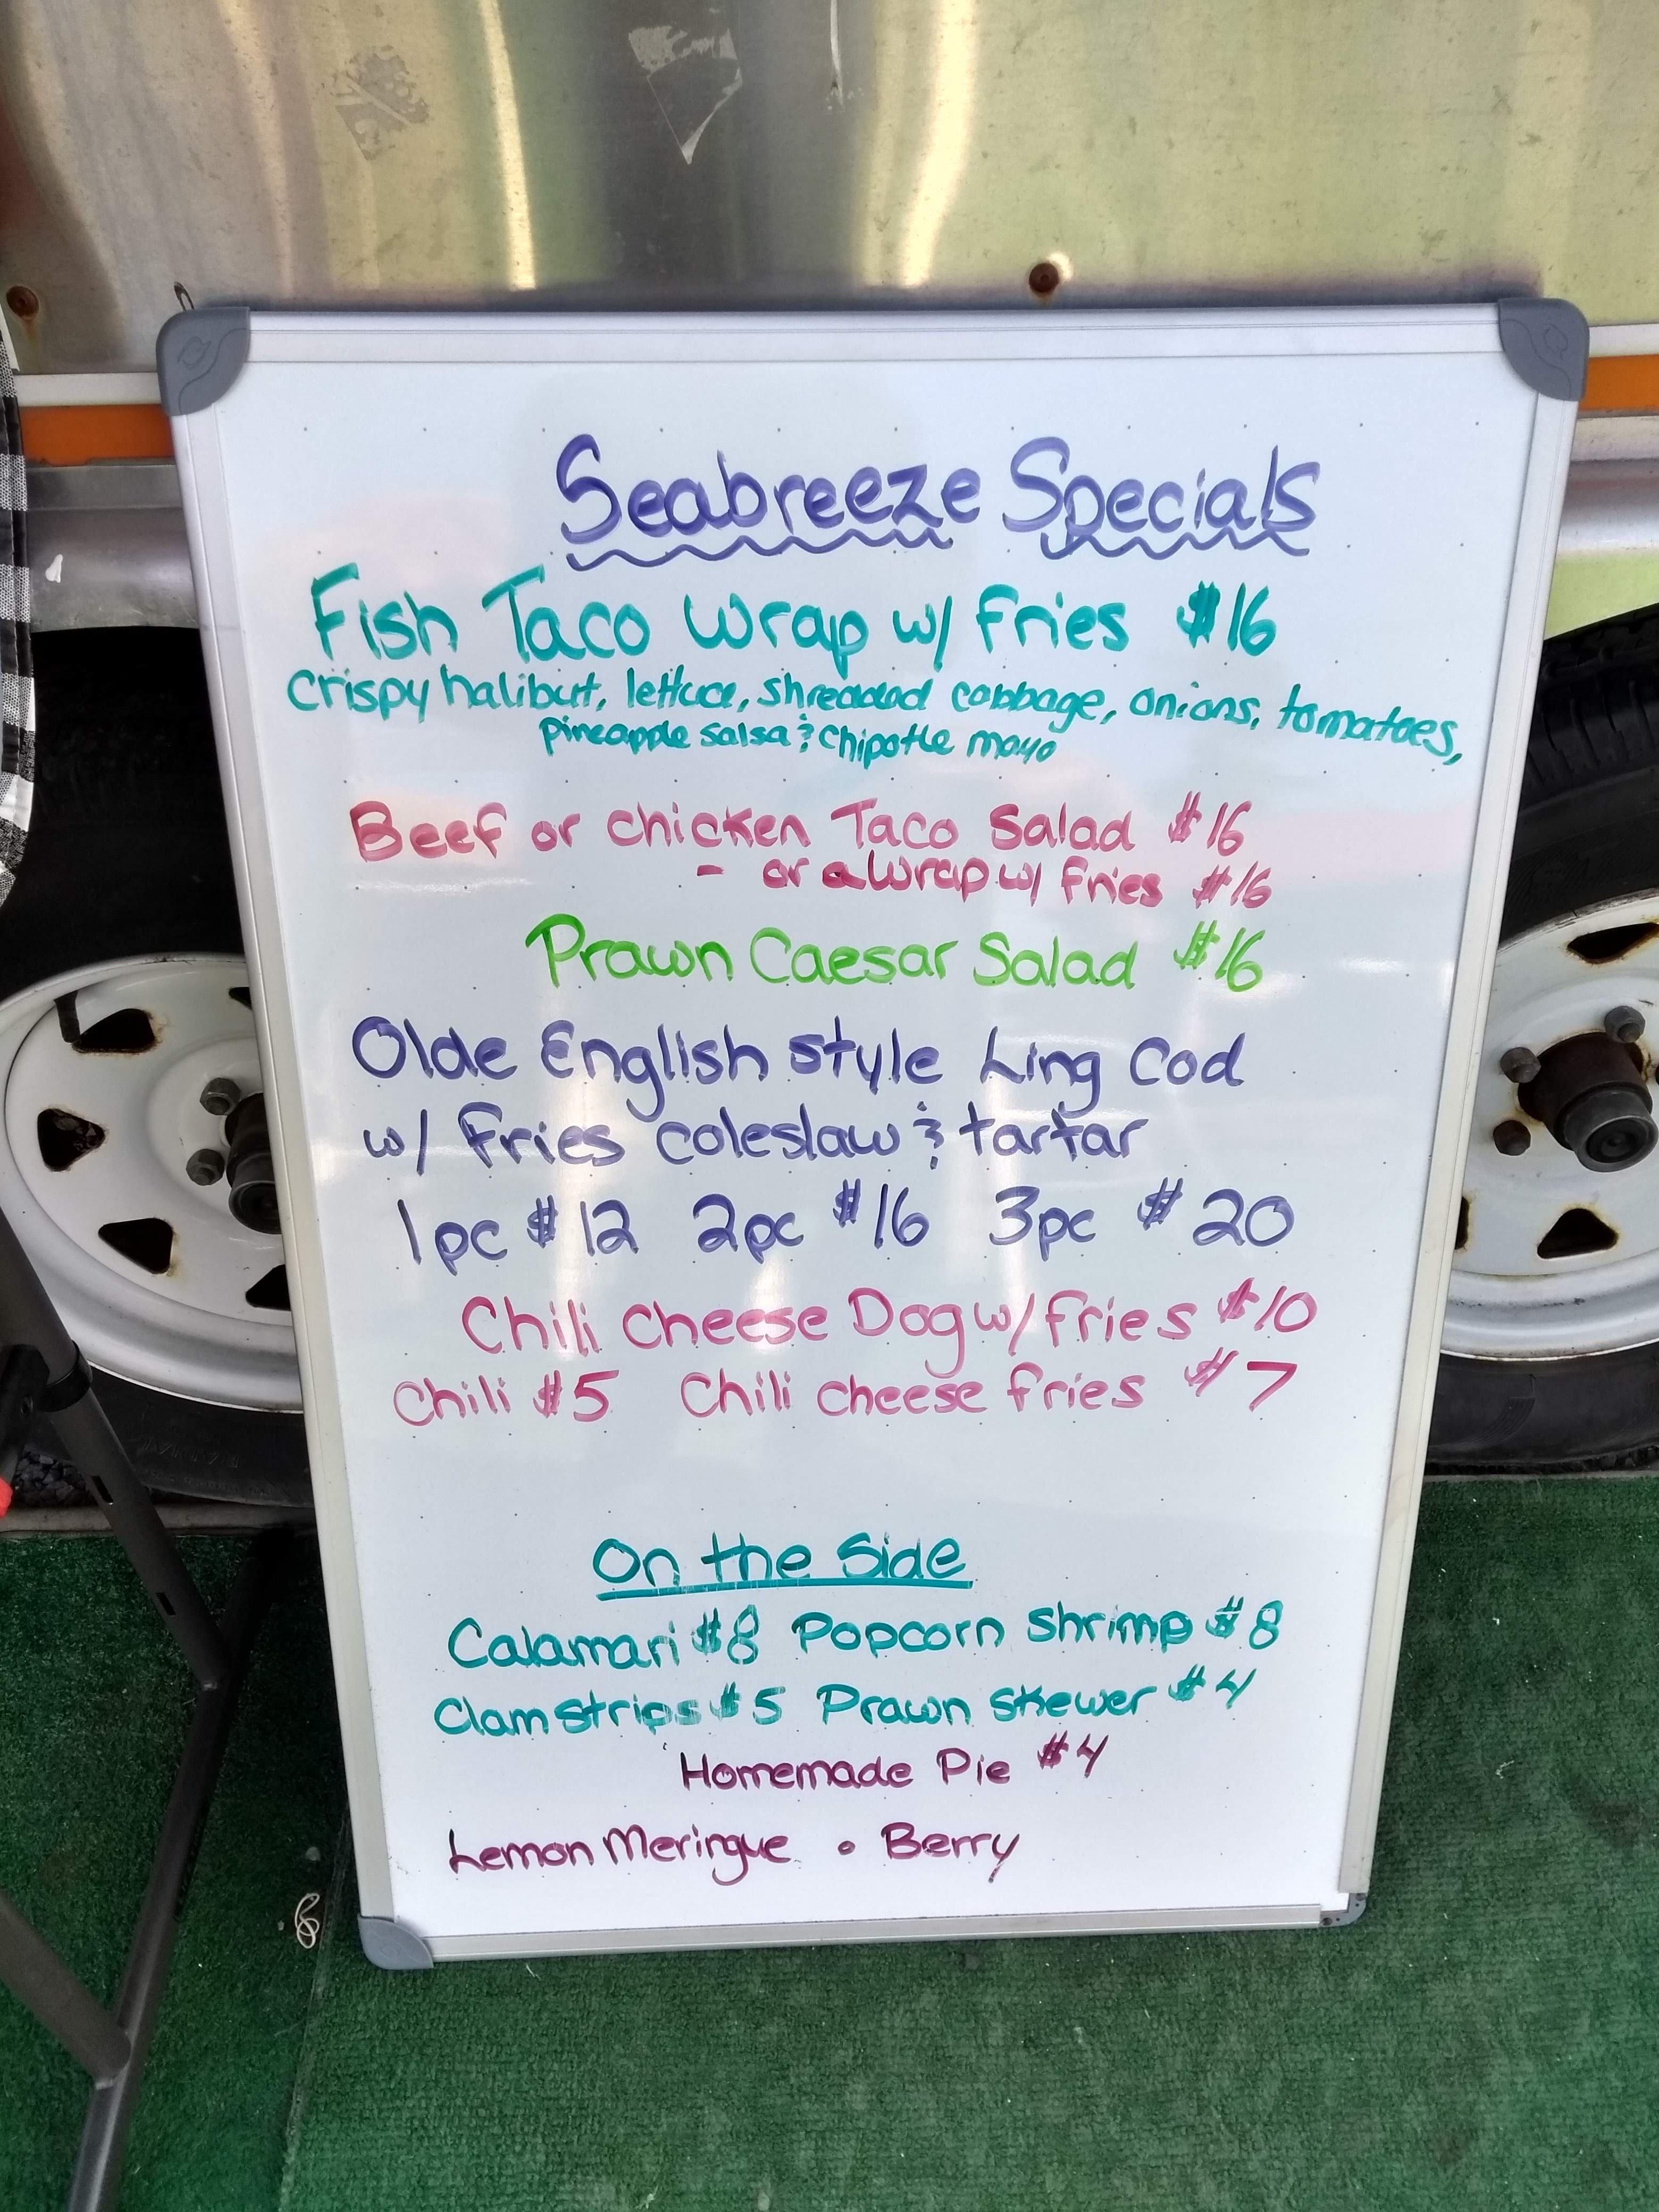 Seabreeze Specials
Fish Taco Wrap w/ fries $16
Crispy halibut, lettuce, shredded cabbage, onions, tomatoes,
pineapple salsa & Chipotle mayo
Beef or chicken Taco Salad $16
- or a Wrap w/ fries $16
Prawn Caesar Salad $16
Olde English style Ling Cod
w/ fries coleslaw & tartar
1pc $12 2pc $16 3pc $20
Chili Cheese Dog w/ fries $10
Chili $5 Chili cheese fries $7
On the Side
Calamari $8 Popcorn Shrimp $8
Clam Strips $5 Prawn Skewer $4
Homemade Pie $4
Lemon Meringue • Berry